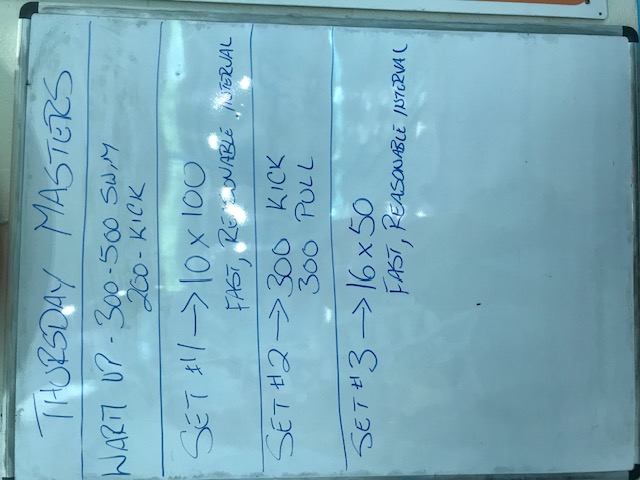 THURSDAY MASTERS
WARM UP - 300-500 SWIM
200 - KICK
SET #1 → 10 x 100
FAST, REASONABLE INTERVAL
SET #2 → 300 KICK
300 PULL
SET #3 → 16 x 50
FAST, REASONABLE INTERVAL